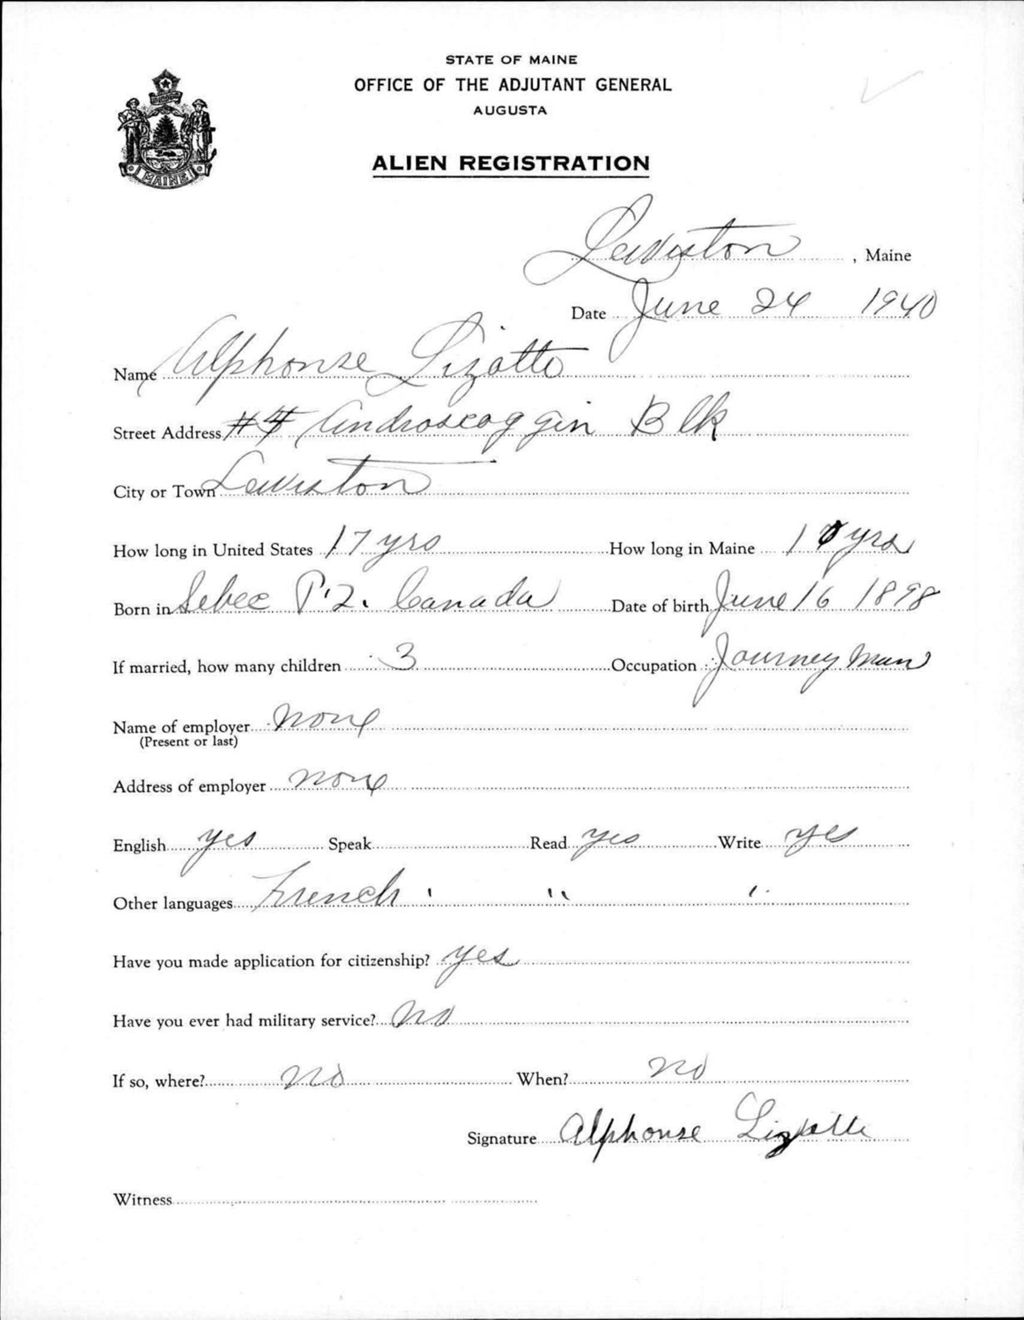 STATE OF MAINE
OFFICE OF THE ADJUTANT GENERAL
AUGUSTA
MAINE
ALIEN REGISTRATION
Lewiston, Maine
Date June 24 1940
Name Alphonse Lizotte
Street Address #4 Androscoggin Blk
City or Town Lewiston
How long in United States 17 yrs How long in Maine yrs
Born in P.Q. Canada Date of birth June 16 1898
If married, how many children 3 Occupation Journey Man
Name of employer none
(Present or last)
Address of employer none
English yes Speak Read yes Write yes
Other languages French " " "
Have you made application for citizenship? yes
Have you ever had military service? No
If so, where? no When? no
Signature Alphonse Lizotte
Witness